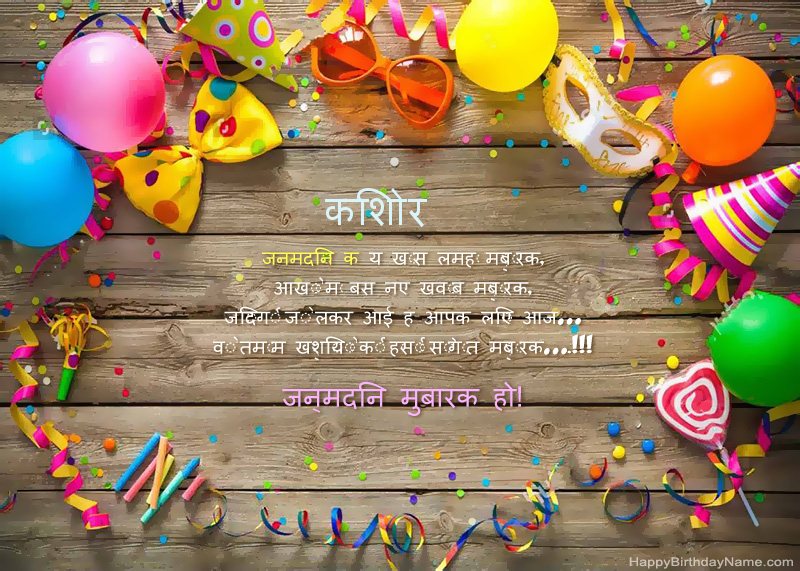 किशोर
जनमदिन क य खास लमह मबारक,
आखो म बस नए खवाब मबारक,
जिदगी जो लकर आई ह आपक लिए आज...
वो तमाम खशियो की हसी सौगात मबारक...!!!
जन्मदिन मुबारक हो!
HappyBirthdayName.com